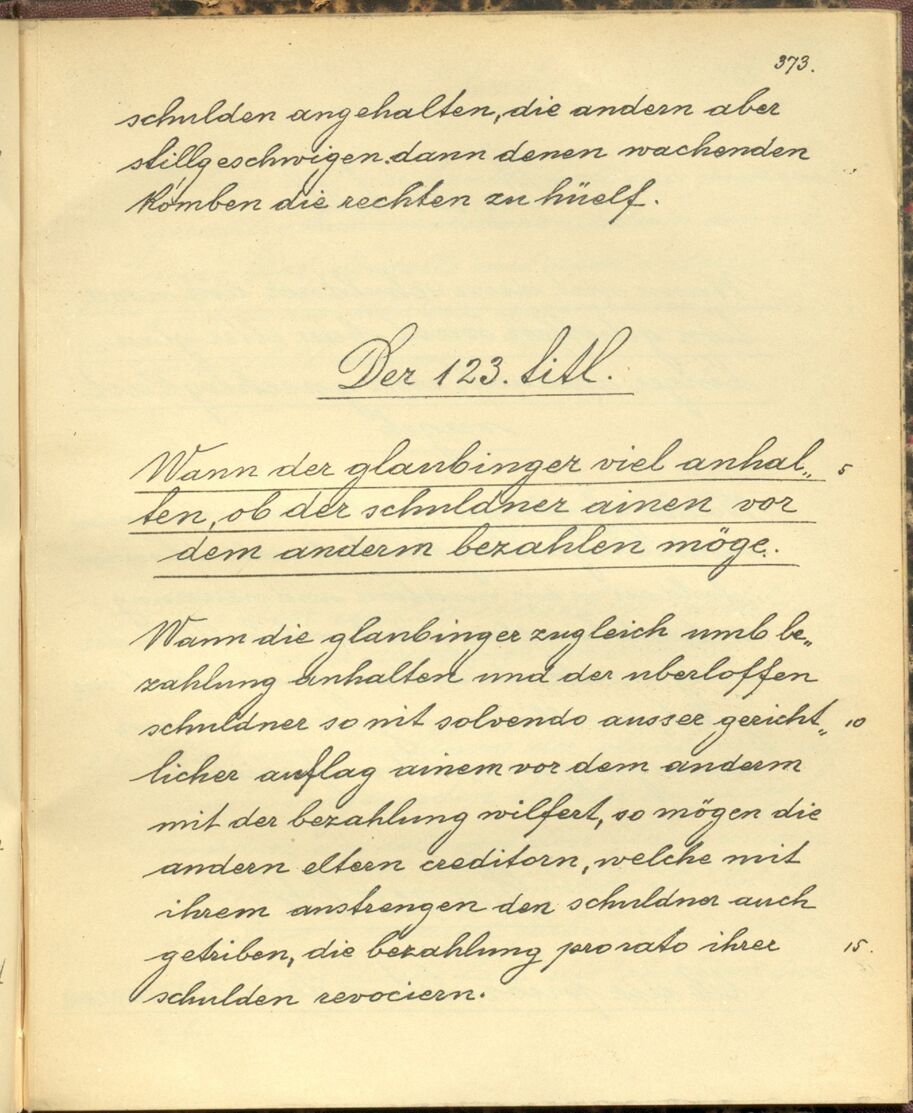 373.
schulden angehalten, die andern aber
stillgeschwigen. dann denen wachenden
komben die rechten zu hüelf.
Der 123. titl.
Wann der glaubinger viel anhal„ 5
ten, ob der schuldner ainen vor
dem anderm bezahlen möge.
Wann die glaubinger zugleich umb be„
zahlung anhalten und der uberloffen
schuldner so nit solvendo ausser gericht„ 10
licher auflag ainem vor dem anderm
mit der bezahlung wilfert, so mögen die
andern eltern creditorn, welche mit
ihrem anstrengen den schuldner auch
getriben, die bezahlung pro rato ihrer 15.
schulden revociern.